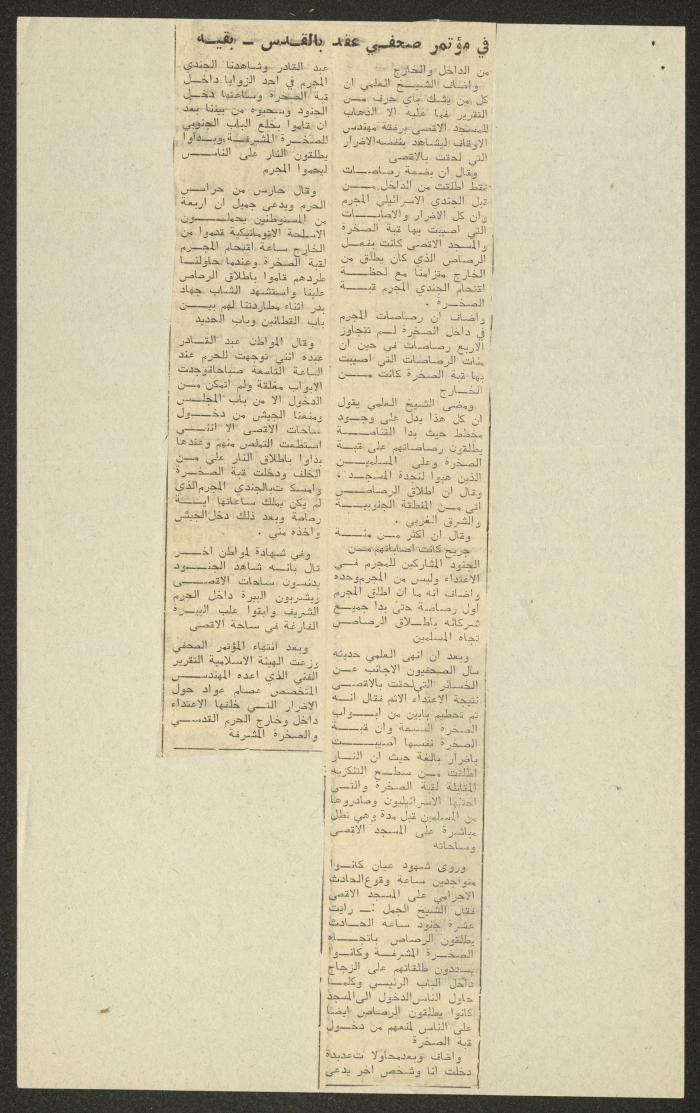 في مؤتمر صحفي عقد بالقدس ــ بقيه
من الداخل والخارج
واضاف الشيخ العلمي ان
كل من يشك باي حرف من
التقرير فما عليه الا الذهاب
للمسجد الاقصى برفقة مهندس
الاوقاف ليشاهد بنفسه الاضرار
التي لحقت بالاقصى
وقال ان بضعة رصاصات
فقط اطلقت من الداخل من
قبل الجندي الاسرائيلي المجرم
وان كل الاضرار والاصابات
التي اصيبت بها قبة الصخرة
والمسجد الاقصى كانت بفعل
الرصاص الذي كان يطلق من
الخارج متزامنا مع لحظة
اقتحام الجندي المجرم قبة
الصخرة .
واضاف ان رصاصات المجرم
في داخل الصخرة لم تتجاوز
الاربع رصاصات في حين ان
مئات الرصاصات التي اصيبت
بها قبة الصخرة كانت من
الخارج
ومضى الشيخ العلمي يقول
ان كل هذا يدل على وجود
مخطط حيث بدا القناصة
يطلقون رصاصاتهم على قبة
الصخرة وعلى المسلمين
الذين هبوا لنجدة المسجد .
وقال ان اطلاق الرصاص
اتى من المنطقة الجنوبية
والشرق الغربي .
وقال ان اكثر من مئة
جريح كانت اصاباتهم من
الجنود المشاركين للمجرم في
الاعتداء وليس من المجرم وحده
واضاف انه ما ان اطلق المجرم
اول رصاصة حتى بدا جميع
شركائه باطلاق الرصاص
تجاه المسلمين
وبعد ان انهى العلمي حديثه
سال الصحفيون الاجانب عن
الخسائر التي لحقت بالاقصى
نتيجة الاعتداء الاثم فقال انه
تم تحطيم بابين من ابواب
الصخرة السبعة وان قبة
الصخرة نفسها اصيبت
باضرار بالغة حيث ان النار
اطلقت من سطح التنكزية
المقابلة لقبة الصخرة والتي
احتلها الاسرائيليون وصادروها
من المسلمين قبل مدة وهي تطل
مباشرة على المسجد الاقصى
وساحاته
وروى شهود عيان كانوا
متواجدين ساعة وقوع الحادث
الاجرامي على المسجد الاقصى
فقال الشيخ الجمل :ــ رايت
عشرة جنود ساعة الحادث
يطلقون الرصاص باتجاه
الصخرة المشرفة وكانوا
يسددون طلقاتهم على الزجاج
داخل الباب الرئيسي وكلما
حاول الناس الدخول الى المسجد
كانوا يطلقون الرصاص ايضا
على الناس لمنعهم من دخول
قبة الصخرة
واضاف وبعد محاولات عديدة
دخلت انا وشخص اخر يدعى
عبد القادر وشاهدنا الجندي
المجرم في احد الزوايا داخل
قبة الصخرة وساعتها دخل
الجنود وسحبوه من بيننا بعد
ان قاموا بخلع الباب الجنوبي
للصخرة المشرفة وبداوا
يطلقون النار على الناس
ليحموا المجرم
وقال حارس من حراس
الحرم ويدعى جميل ان اربعة
من المستوطنين يحملون
الاسلحة الاتوماتيكية قدموا من
الخارج ساعة اقتحام المجرم
لقبة الصخرة وعندما حاولنا
طردهم قاموا باطلاق الرصاص
علينا واستشهد الشاب جهاد
بدر اثناء مطاردتنا لهم بين
باب القطانين وباب الحديد
وقال المواطن عبد القادر
عبده انني توجهت للحرم عند
الساعة التاسعة صباحا فوجدت
الابواب مغلقة ولم اتمكن من
الدخول الا من باب المجلس
ومنعنا الجيش من دخول
ساحات الاقصى الا انني
استطعت التملص منهم وعندها
بداوا باطلاق النار علي من
الخلف ودخلت قبة الصخرة
وامسكت بالجندي المجرم الذي
لم يكن يملك ساعتها اية
رصاصة وبعد ذلك دخل الجيش
واخذه مني .
وفي شهادة لمواطن اخر
قال بانه شاهد الجنود
يدنسون ساحات الاقصى
ويشربون البيرة داخل الحرم
الشريف وابقوا علب البيرة
الفارغة في ساحة الاقصى
وبعد انتهاء المؤتمر الصحفي
وزعت الهيئة الاسلامية التقرير
الفني الذي اعده المهندس
المتخصص عصام عواد حول
الاضرار التي خلفها الاعتداء
داخل وخارج الحرم القدسي
والصخرة المشرفة